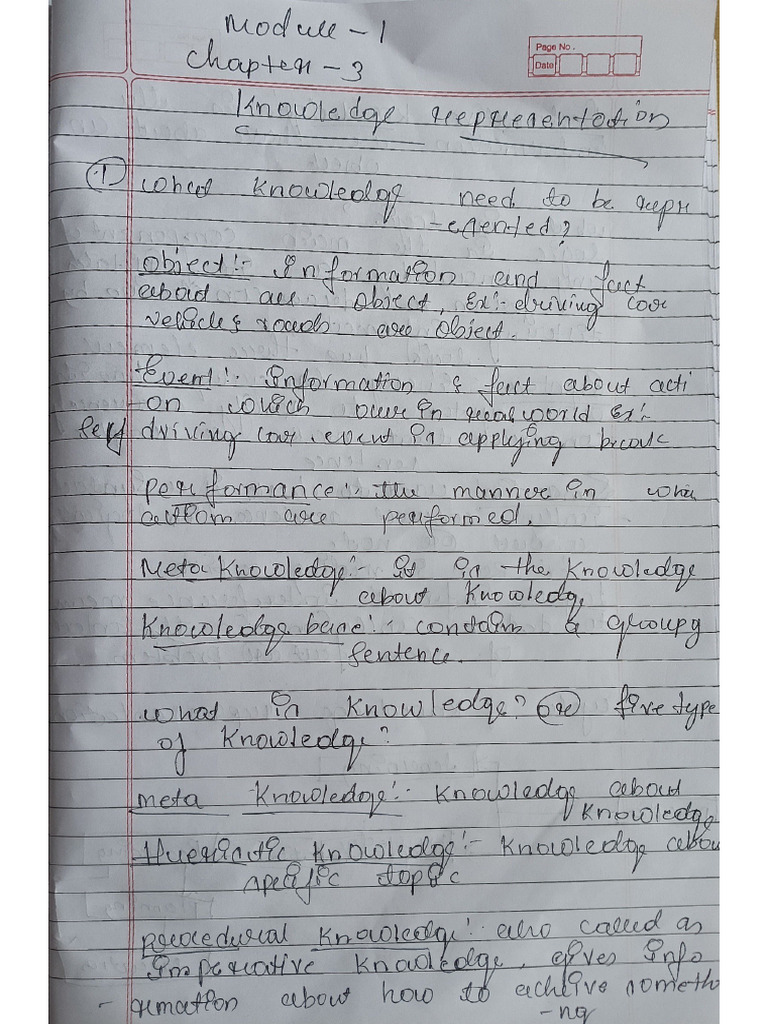 Module - 1
Chapter - 3
Page No.
Date
Knowledge representation
① What Knowledge need to be repr
-esented?
Object:- Information and fact
about all object, Ex:- driving car
vehicles roads are object.
Event:- Information & fact about acti
on which occur in real world Ex:-
self driving car. event is applying break
performance:- the manner in
action are performed.
Meta Knowledge:- It is the knowledge
about knowledg
Knowledge base:- contain a group of
sentence.
What is Knowledge? or five type
of Knowledge?
meta Knowledge:- Knowledge about
Knowledge
Hueristic Knowledge:- Knowledge abou
specific topic
procedural Knowledge:- also called as
imperative knowledge, gives info
- rmation about how to achive someth
-ng